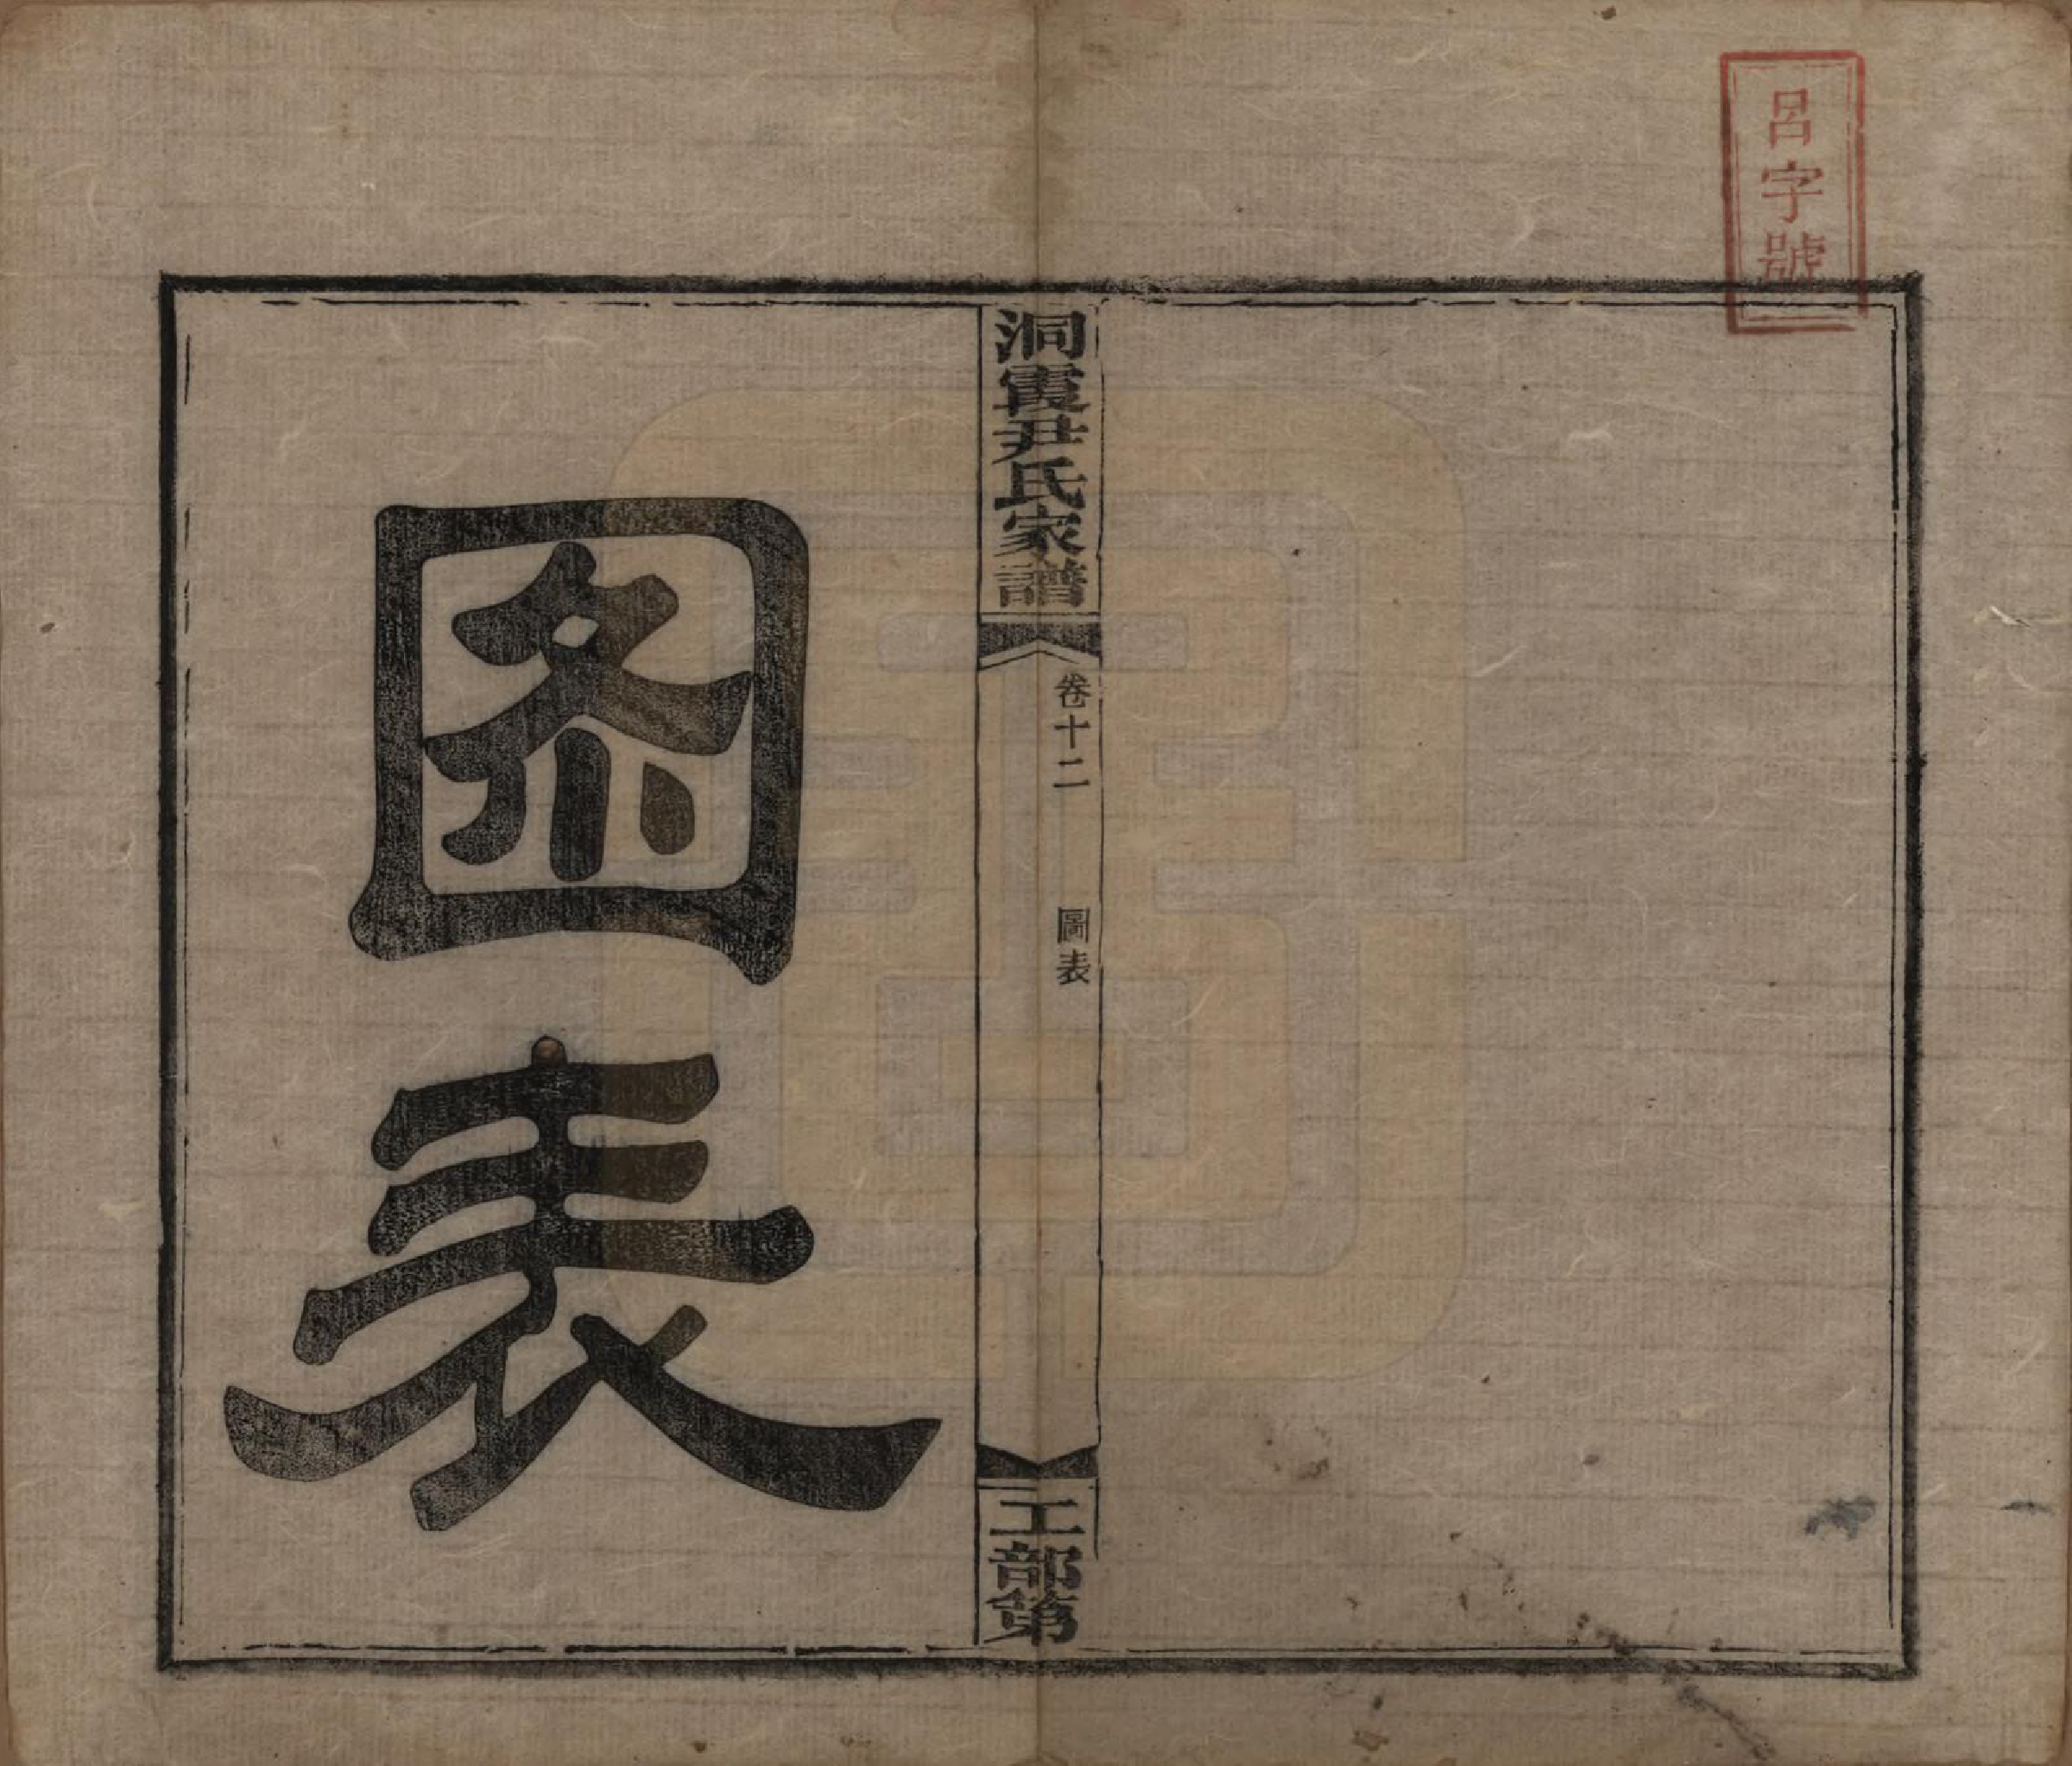 呂字號
洞霞尹氏家譜
卷十二
圖表
工部第
圖表